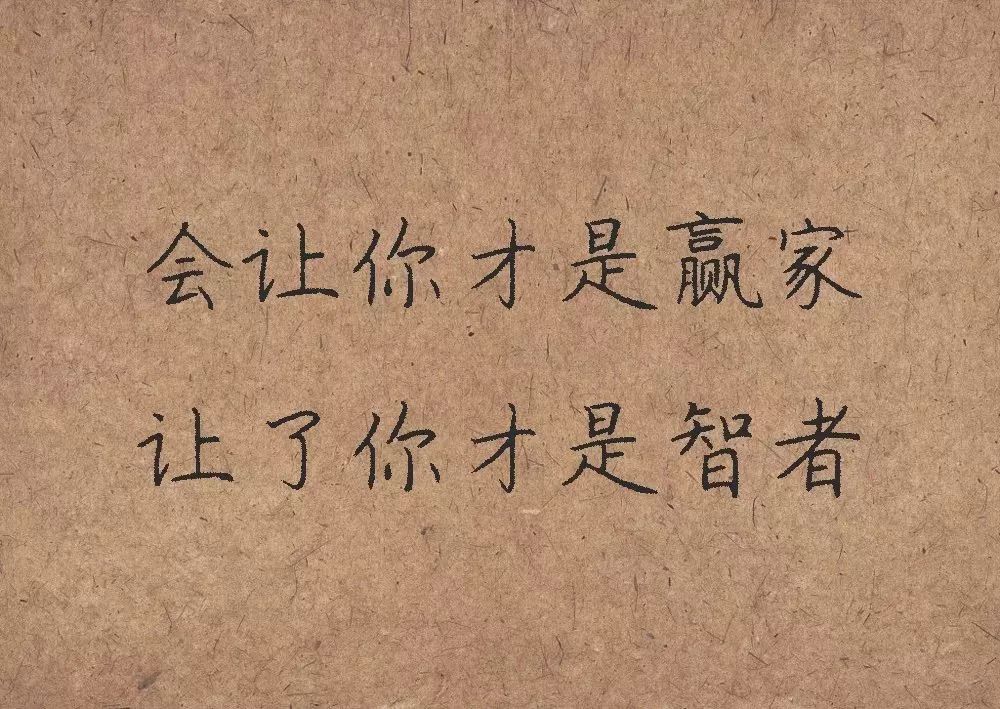 会让你才是赢家
让了你才是智者